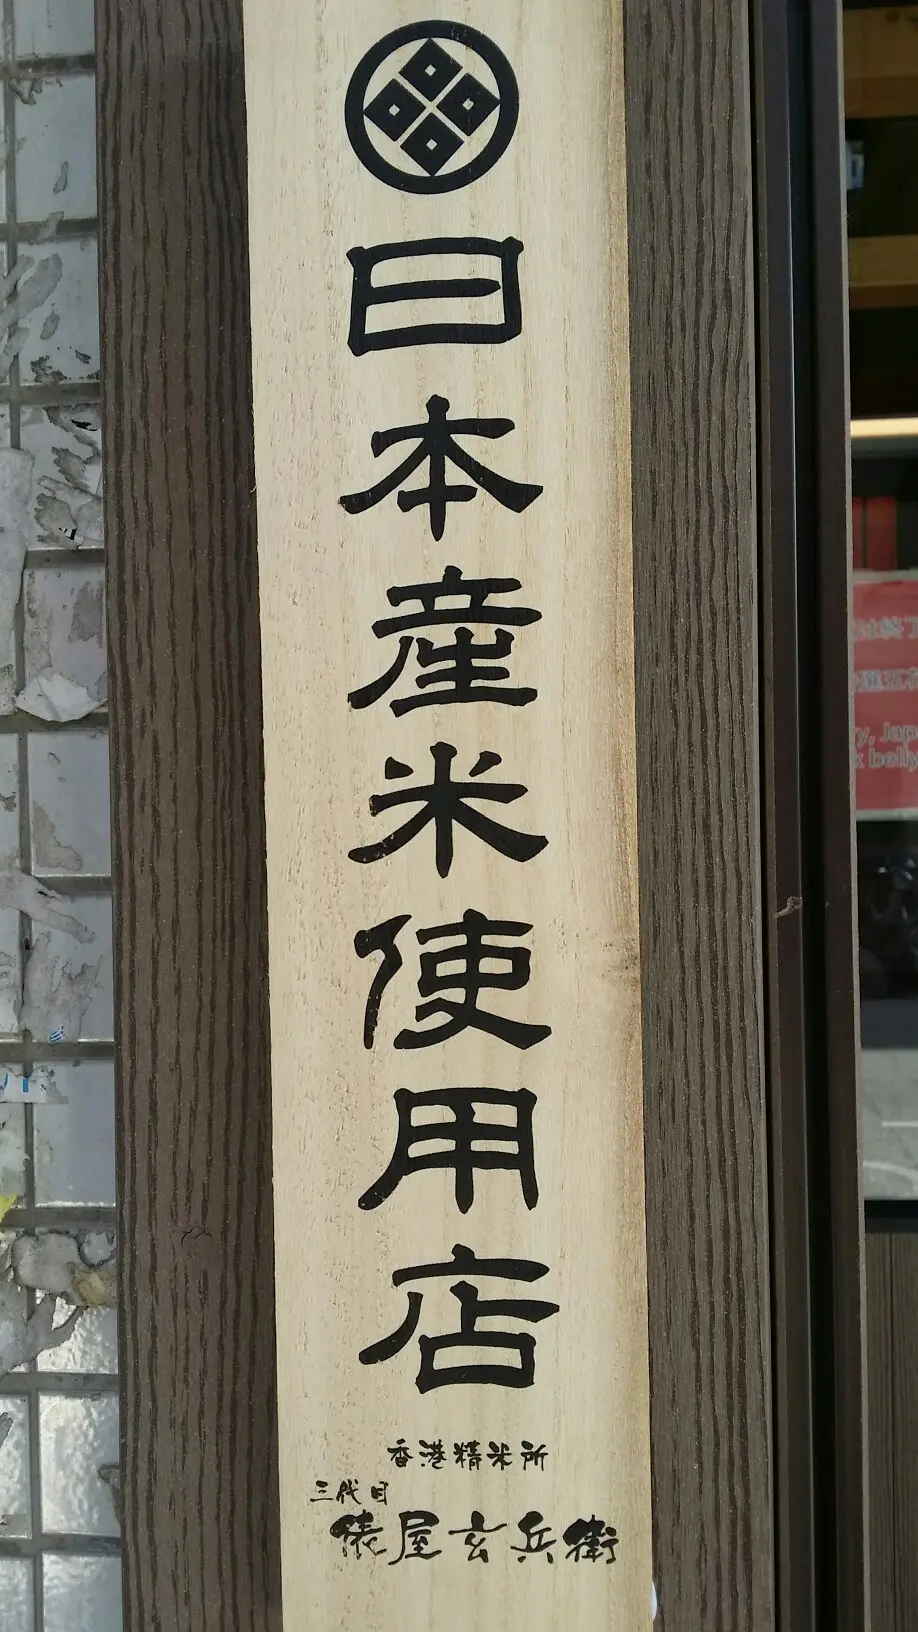 日本産米使用店
香港精米所
三代目
俵屋玄兵衛
は終了
y, Jap
k belly